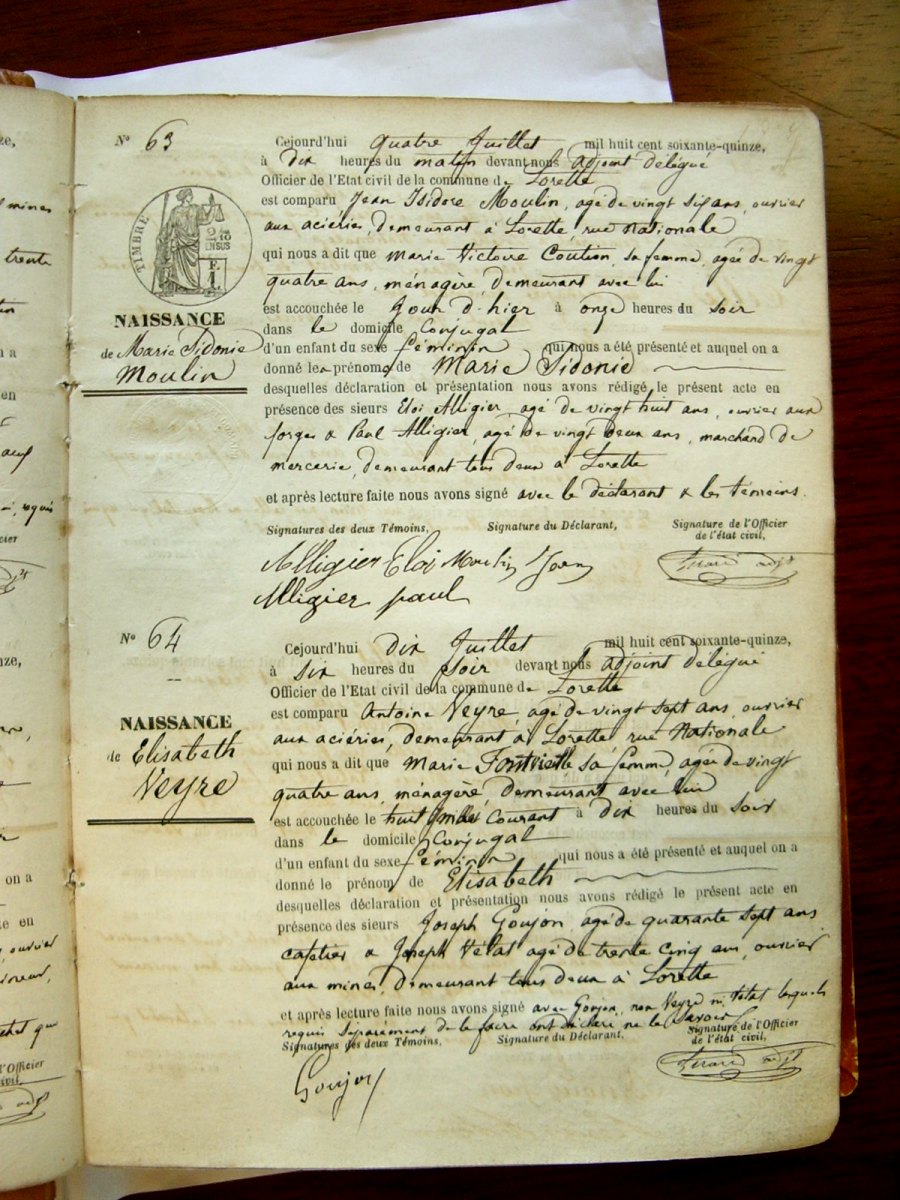 N° 63
Cejourd'hui quatre Juillet mil huit cent soixante-quinze,
à dix heures du matin devant nous adjoint délégué
Officier de l'Etat civil de la commune de Lorette
est comparu Jean Isidore Moulin, agé de vingt six ans, ouvrier
aux aciéries, demeurant à Lorette, rue Nationale
qui nous a dit que Marie Victoire Coutien, sa femme, agée de vingt
quatre ans, ménagère, demeurant avec lui
est accouchée le jour d'hier à onze heures du soir
dans le domicile conjugal
d'un enfant du sexe féminin qui nous a été présenté et auquel on a
donné les prénoms de Marie Sidonie
desquelles déclaration et présentation nous avons rédigé le présent acte en
présence des sieurs Eloi Alligier, agé de vingt huit ans, ouvrier aux
forges & Paul Alligier, agé de vingt deux ans, marchand de
mercerie, demeurant tous deux à Lorette
et après lecture faite nous avons signé avec le déclarant & les témoins.
TIMBRE
2/10
EN SUS
F.
1.
NAISSANCE
de Marie Sidonie
Moulin
Signatures des deux Témoins, Signature du Déclarant, Signature de l'Officier
de l'état civil,
Alligier Eloi Moulin Jean
Alligier paul
N° 64
Cejourd'hui dix Juillet mil huit cent soixante-quinze,
à six heures du soir devant nous adjoint délégué
Officier de l'Etat civil de la commune de Lorette
est comparu Antoine Veyre, agé de vingt sept ans, ouvrier
aux aciéries, demeurant à Lorette rue Nationale
qui nous a dit que Marie Fontvieille sa femme, agée de vingt
quatre ans, ménagère, demeurant avec lui
est accouchée le huit du courant à dix heures du soir
dans le domicile conjugal
d'un enfant du sexe féminin qui nous a été présenté et auquel on a
donné le prénom de Elisabeth
desquelles déclaration et présentation nous avons rédigé le présent acte en
présence des sieurs Joseph Goujon, agé de quarante sept ans
cafetier & Joseph Vélat agé de trente cinq ans, ouvrier
aux mines, demeurant tous deux à Lorette
et après lecture faite nous avons signé avec Goujon, non Veyre ni Vélat lesquels
requis séparément de le faire ont déclaré ne le savoir
NAISSANCE
de Elisabeth
Veyre
Signatures des deux Témoins, Signature du Déclarant, Signature de l'Officier
de l'état civil,
Goujon